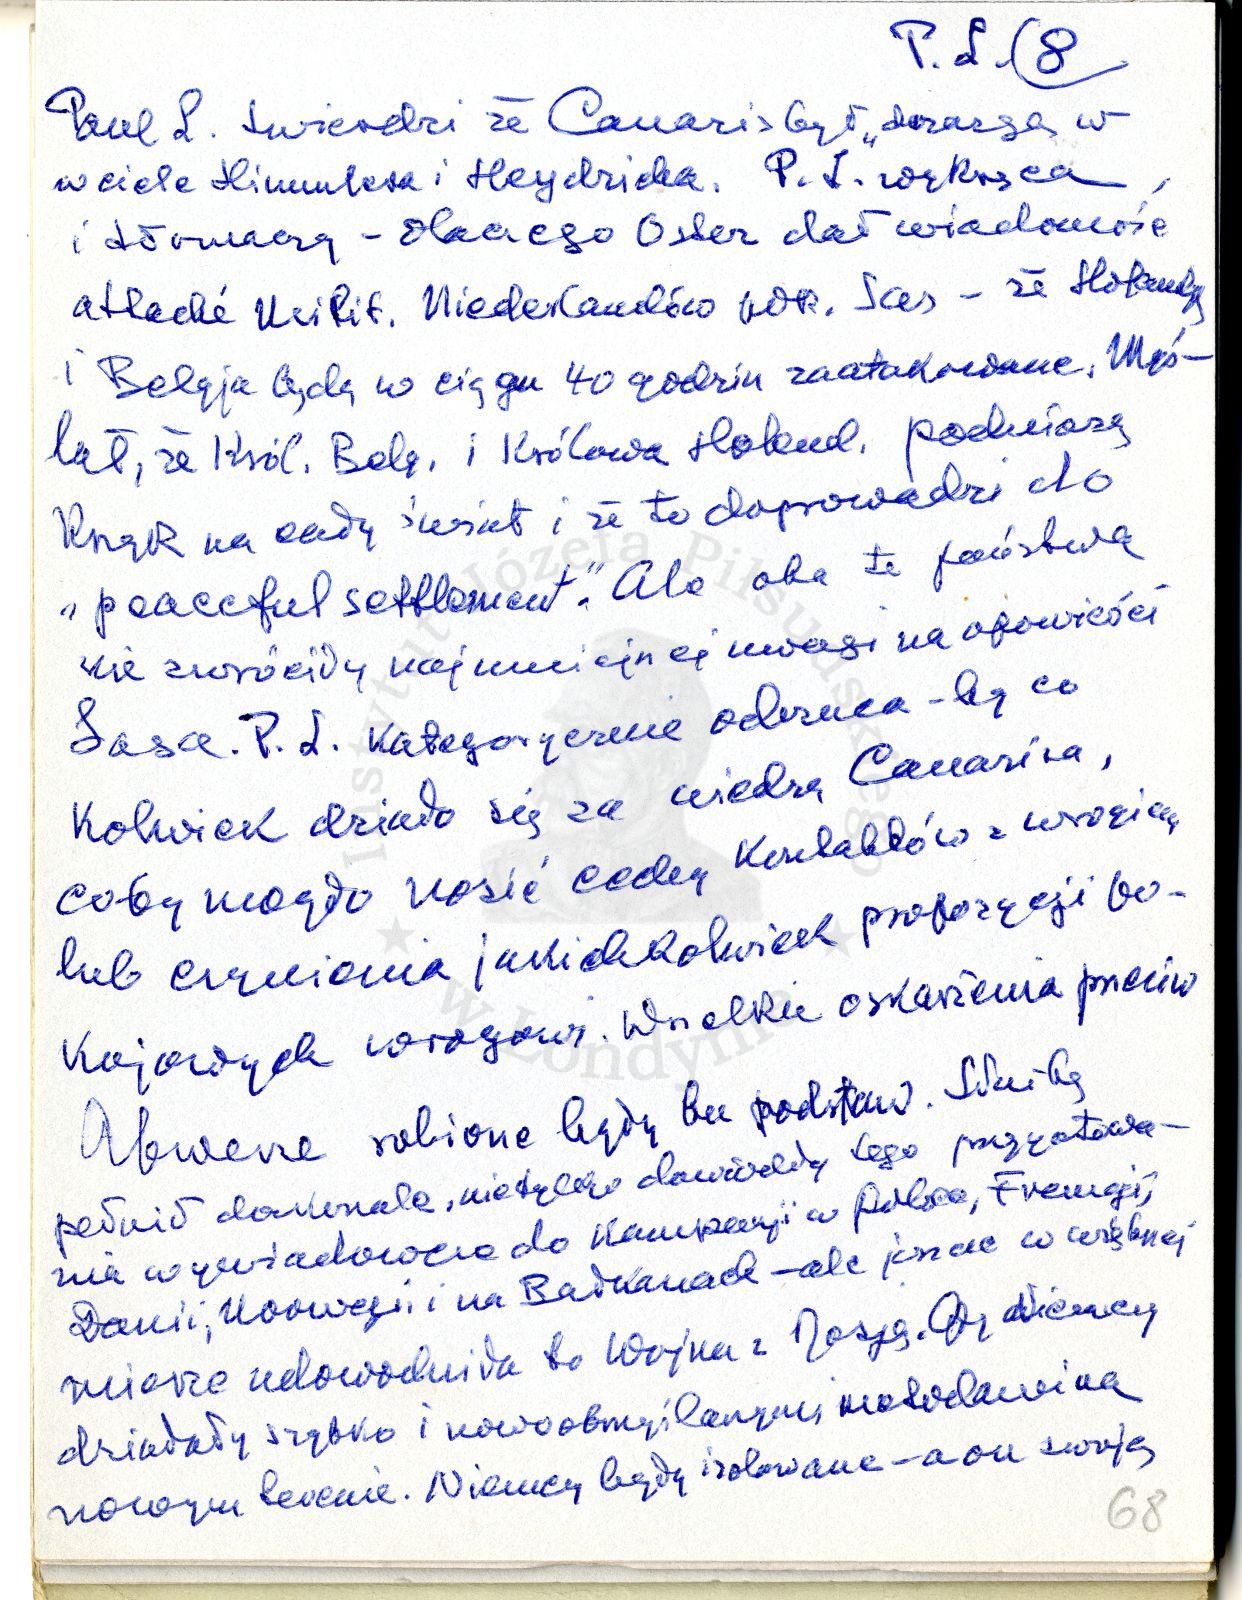 P. L. (8
Paul L. twierdzi że Canaris był „drzazgą w
w ciele Himmlera i Heydricha. P. L. wykręca,
i tłomaczą - dlaczego Oster dał wiadomość
attaché milit. Niederlandów płk. Sas - że Holandja
i Belgja będą w ciągu 40 godzin zaatakowane. Myś-
lał, że Król. Belg. i Królowa Holend. podniosą
krzyk na cały świat i że to doprowadzi do
„peaceful settlement". Ale oba te państwa
nie zwróciły najmniejszej uwagi na opowieści
Sasa. P. L. kategorycznie odrzuca - by co
kolwiek działo się za wiedzą Canarisa,
coby mogło nosić cechy kontaktów z wrogiem
lub czynienia jakichkolwiek propozycji po-
kojowych wrogowi. Wszelkie oskarżenia przeciw
Abwerze robione były bez podstaw. Służbę
pełnił doskonale, nietylko dowiodły tego przygotowa-
nia wywiadowcze do kampanji w Polsce, Francji,
Danii, Norwegii i na Bałkanach - ale jeszcze w większej
mierze udowodniła to wojna z Rosją. Gdy Niemcy
działały szybko i nowoobmyślanymi metodami na
nowym terenie. Niemcy były izolowane - a on swoją
68
Instytut Józefa Piłsudskiego
w Londynie